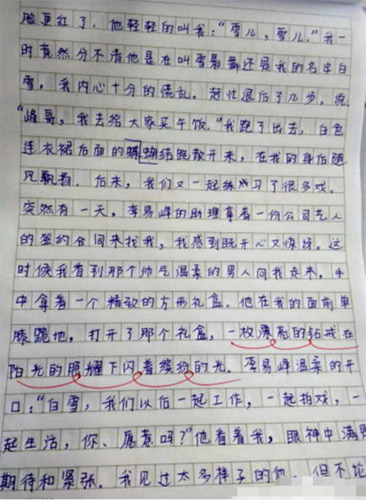 脸更红了。他轻轻的叫我:“雪儿,雪儿。”我一
时竟然分不清他是在叫雪景舞还是我的名字白
雪,我内心十分的慌乱。赶忙退后了几步,说
“峰哥,我去给大家买午饭。”我跑了出去,白色
连衣裙后面的蝴蝶结飘散开来,在我的身后随
风飘着。后来,我们又一起练习了很多戏。
突然有一天,李易峰的助理拿着一份公司艺人
的签约合同来找我,我感到既开心又惊讶。这
时候我看到那个帅气温柔的男人向我走来,手
中拿着一个精致的方形礼盒。他在我的面前单
膝跪地,打开了那个礼盒,一枚漂亮的钻戒在
阳光的照耀下闪着缤纷的光。李易峰温柔的开
口:“白雪,我们以后一起工作,一起拍戏,一
起生活,你、愿意吗?”他看着我,眼神中满是
期待和紧张。我见过太多样子的他,但不论